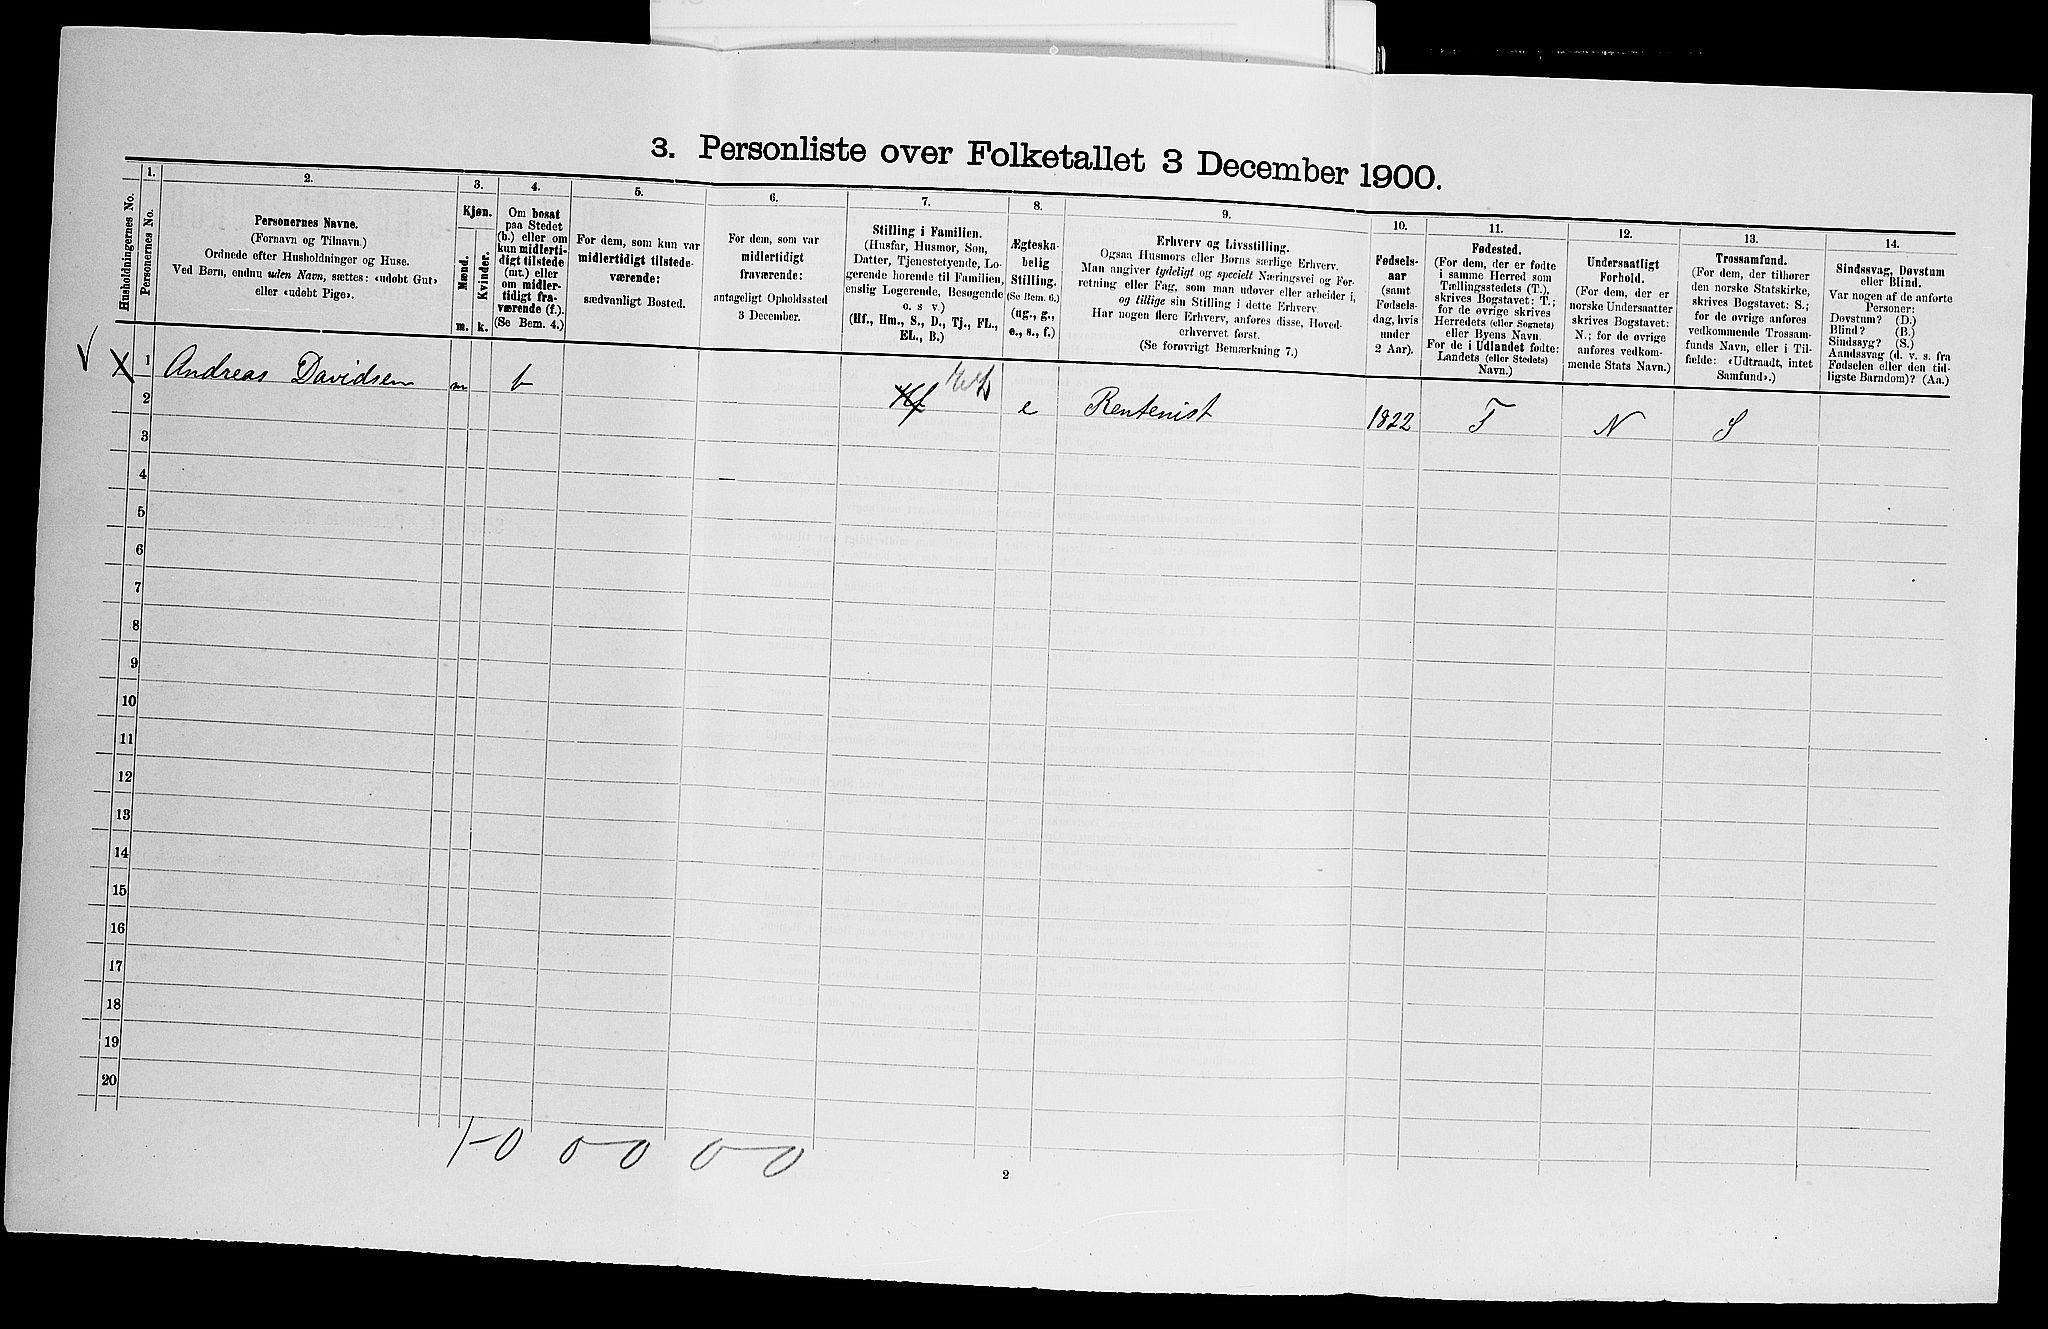 3. Personliste over Folketallet 3 December 1900.
Husholdningernes No.
1.
Personernes No.
2.
Personernes Navne.
(Fornavn og Tilnavn.)
Ordnede efter Husholdninger og Huse.
Ved Børn, endnu uden Navn, sættes: «udøbt Gut»
eller «udøbt Pige».
3.
Kjøn.
Mænd.
m.
Kvinder.
k.
4.
Om bosat
paa Stedet
(b.) eller om
kun midlerti-
digt tilstede
(mt.) eller
om midler-
tidigt fra-
værende (f.).
(Se Bem. 4.)
5.
For dem, som kun var
midlertidigt tilstede-
værende:
sædvanligt Bosted.
6.
For dem, som var
midlertidigt
fraværende:
antageligt Opholdssted
3 December.
7.
Stilling i Familien.
(Husfar, Husmor, Søn,
Datter, Tjenestetyende, Lo-
gerende hørende til Familien,
enslig Logerende, Besøgende
o. s v.)
(Hf., Hm., S., D., Tj., FL.,
EL., B.)
8.
Ægteska-
belig
Stilling.
(Se Bem. 6.)
(ug., g.,
e., s., f.)
9.
Erhverv og Livsstilling.
Ogsaa Husmors eller Børns særlige Erhverv.
Man angiver tydeligt og specielt Næringsvei og For-
retning eller Fag, som man udøver eller arbeider i,
og tillige sin Stilling i dette Erhverv.
Har nogen flere Erhverv, anføres disse, Hoved-
erhvervet først.
(Se forøvrigt Bemærkning 7.)
10.
Fødsels-
aar
(samt
Fødsels-
dag, hvis
under
2 Aar).
11.
Fødested.
(For dem, der er fødte
i samme Herred som
Tællingsstedets (T.),
skrives Bogstavet: T.;
for de øvrige skrives
Herredets (eller Sognets)
eller Byens Navn.
For de i Udlandet fødte:
Landets (eller Stedets)
Navn.)
12.
Undersaatligt
Forhold.
(For dem, der er
norske Undersaatter
skrives Bogstavet:
N.; for de øvrige
anføres vedkom-
mende Stats Navn.)
13.
Trossamfund.
(For dem, der tilhører
den norske Statskirke,
skrives Bogstavet: S.;
for de øvrige anføres
vedkommende Trossam-
funds Navn, eller i Til-
fælde: «Udtraadt, intet
Samfund».)
14.
Sindssvag, Døvstum
eller Blind.
Var nogen af de anførte
Personer:
Døvstum? (D.)
Blind? (B.)
Sindssyg? (S.)
Aandssvag (d. v. s. fra
Fødselen eller den tid-
ligste Barndom)? (Aa.)
X 1 Andreas Davidsen m b Hf e Rentenist 1822 T N S
2
3
4
5
6
7
8
9
10
11
12
13
14
15
16
17
18
19
20
1-0 0-0 0-0
2